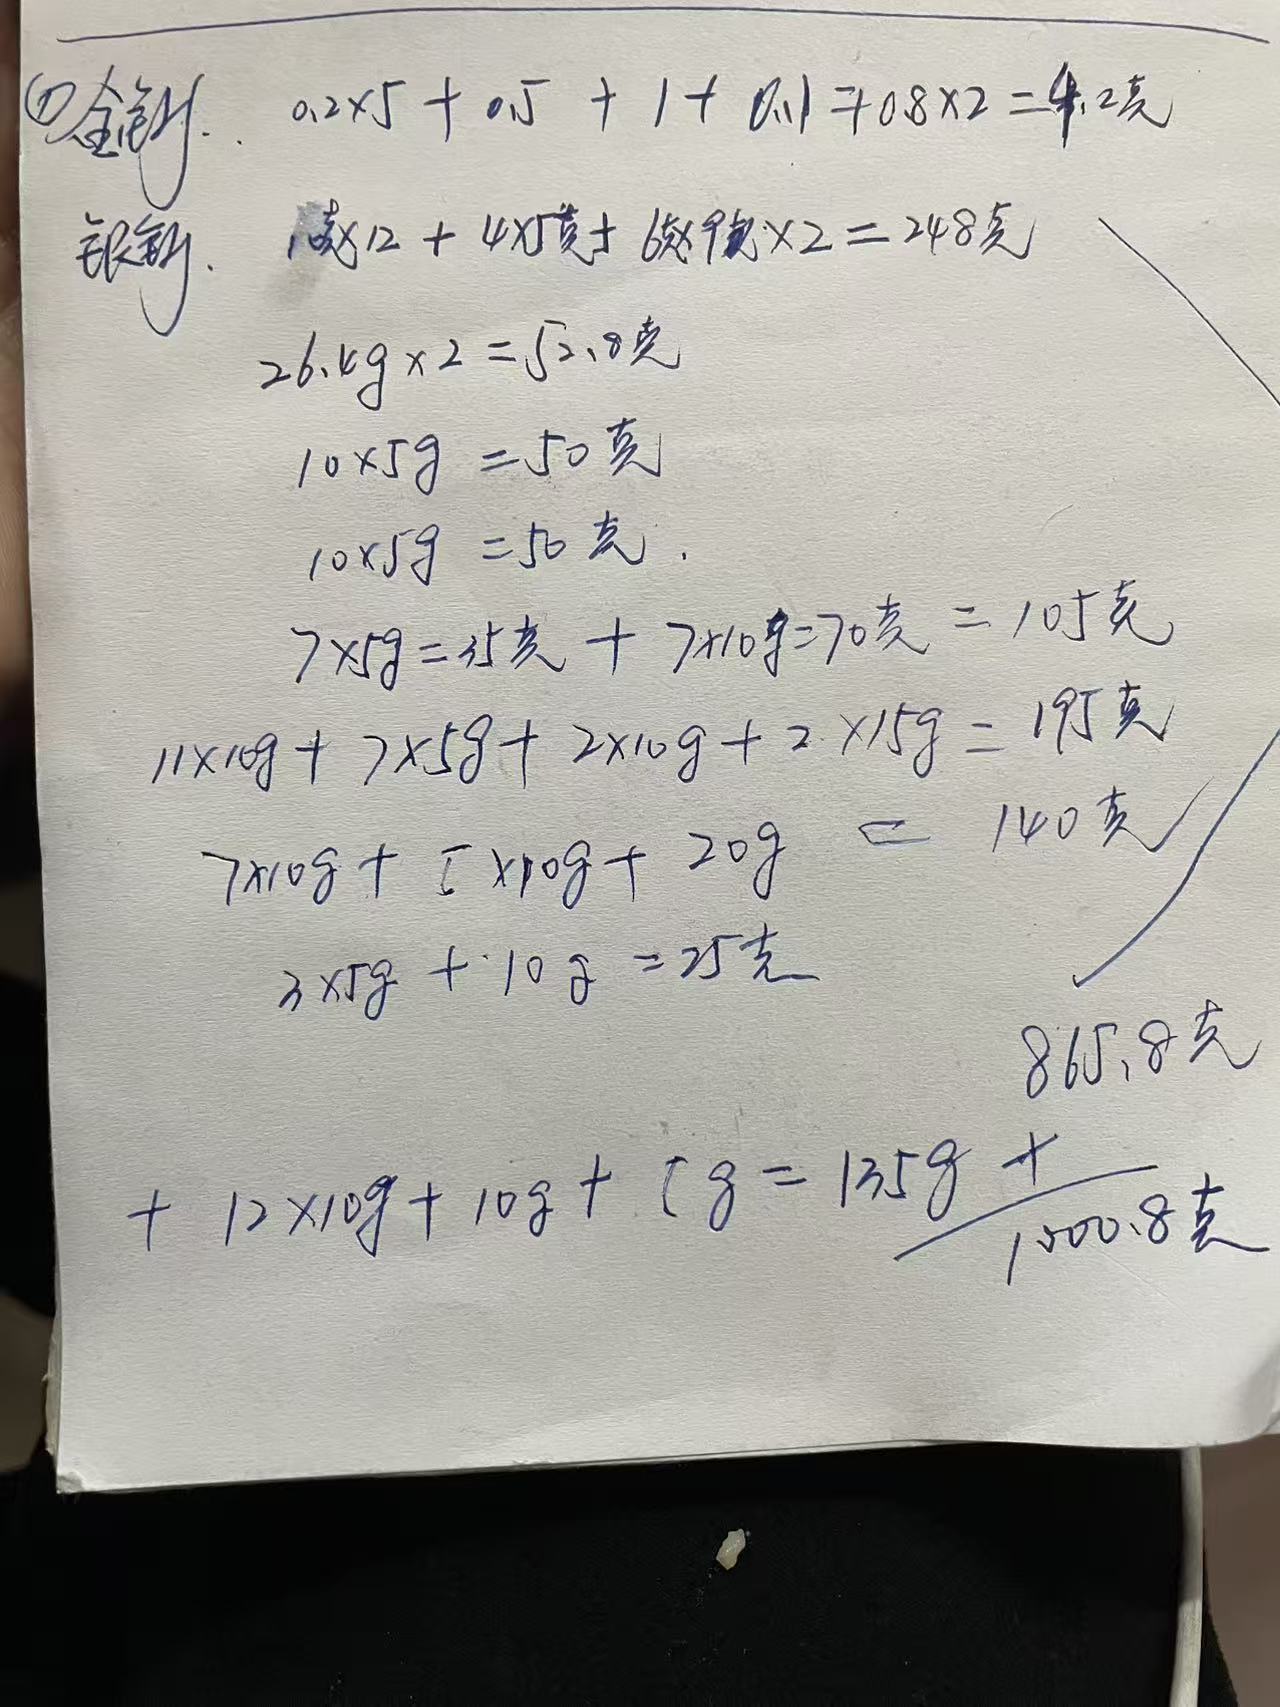 ① 金制. 0.2×5 + 0.5 + 1 + 0.1 + 0.8×2 = 4.2克
银制. 10克×12 + 4×5克 + 6克×9 ×2 = 248克
26.4g×2 = 52.8克
10×5g = 50克
10×5g = 50克.
7×5g=35克 + 7×10g=70克 = 105克
11×10g + 7×5g + 2×10g + 2×15g = 195克
7×10g + 5×10g + 20g = 140克
3×5g + 10g = 25克
865.8克
+ 12×10g + 10g + 5g = 135g +
1000.8克